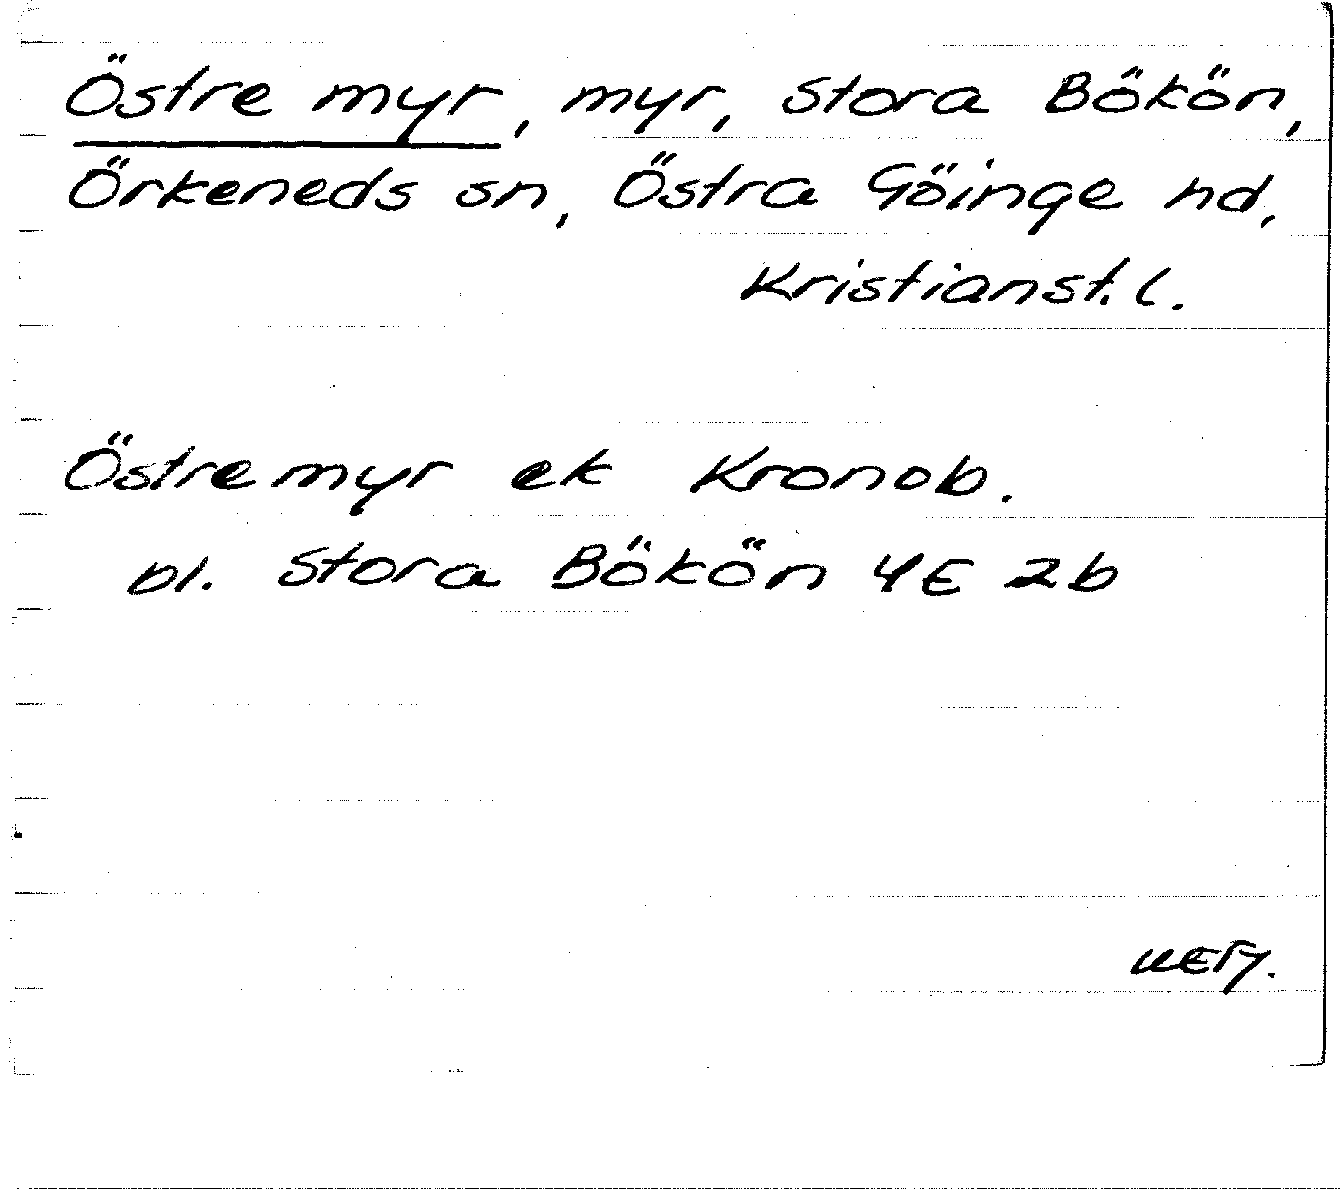 Östre myr, myr, Stora Bökön,
Örkeneds sn, Östra Göinge hd,
Kristianst. l.
Östre myr ek Kronob.
bl. Stora Bökön 4E 2b